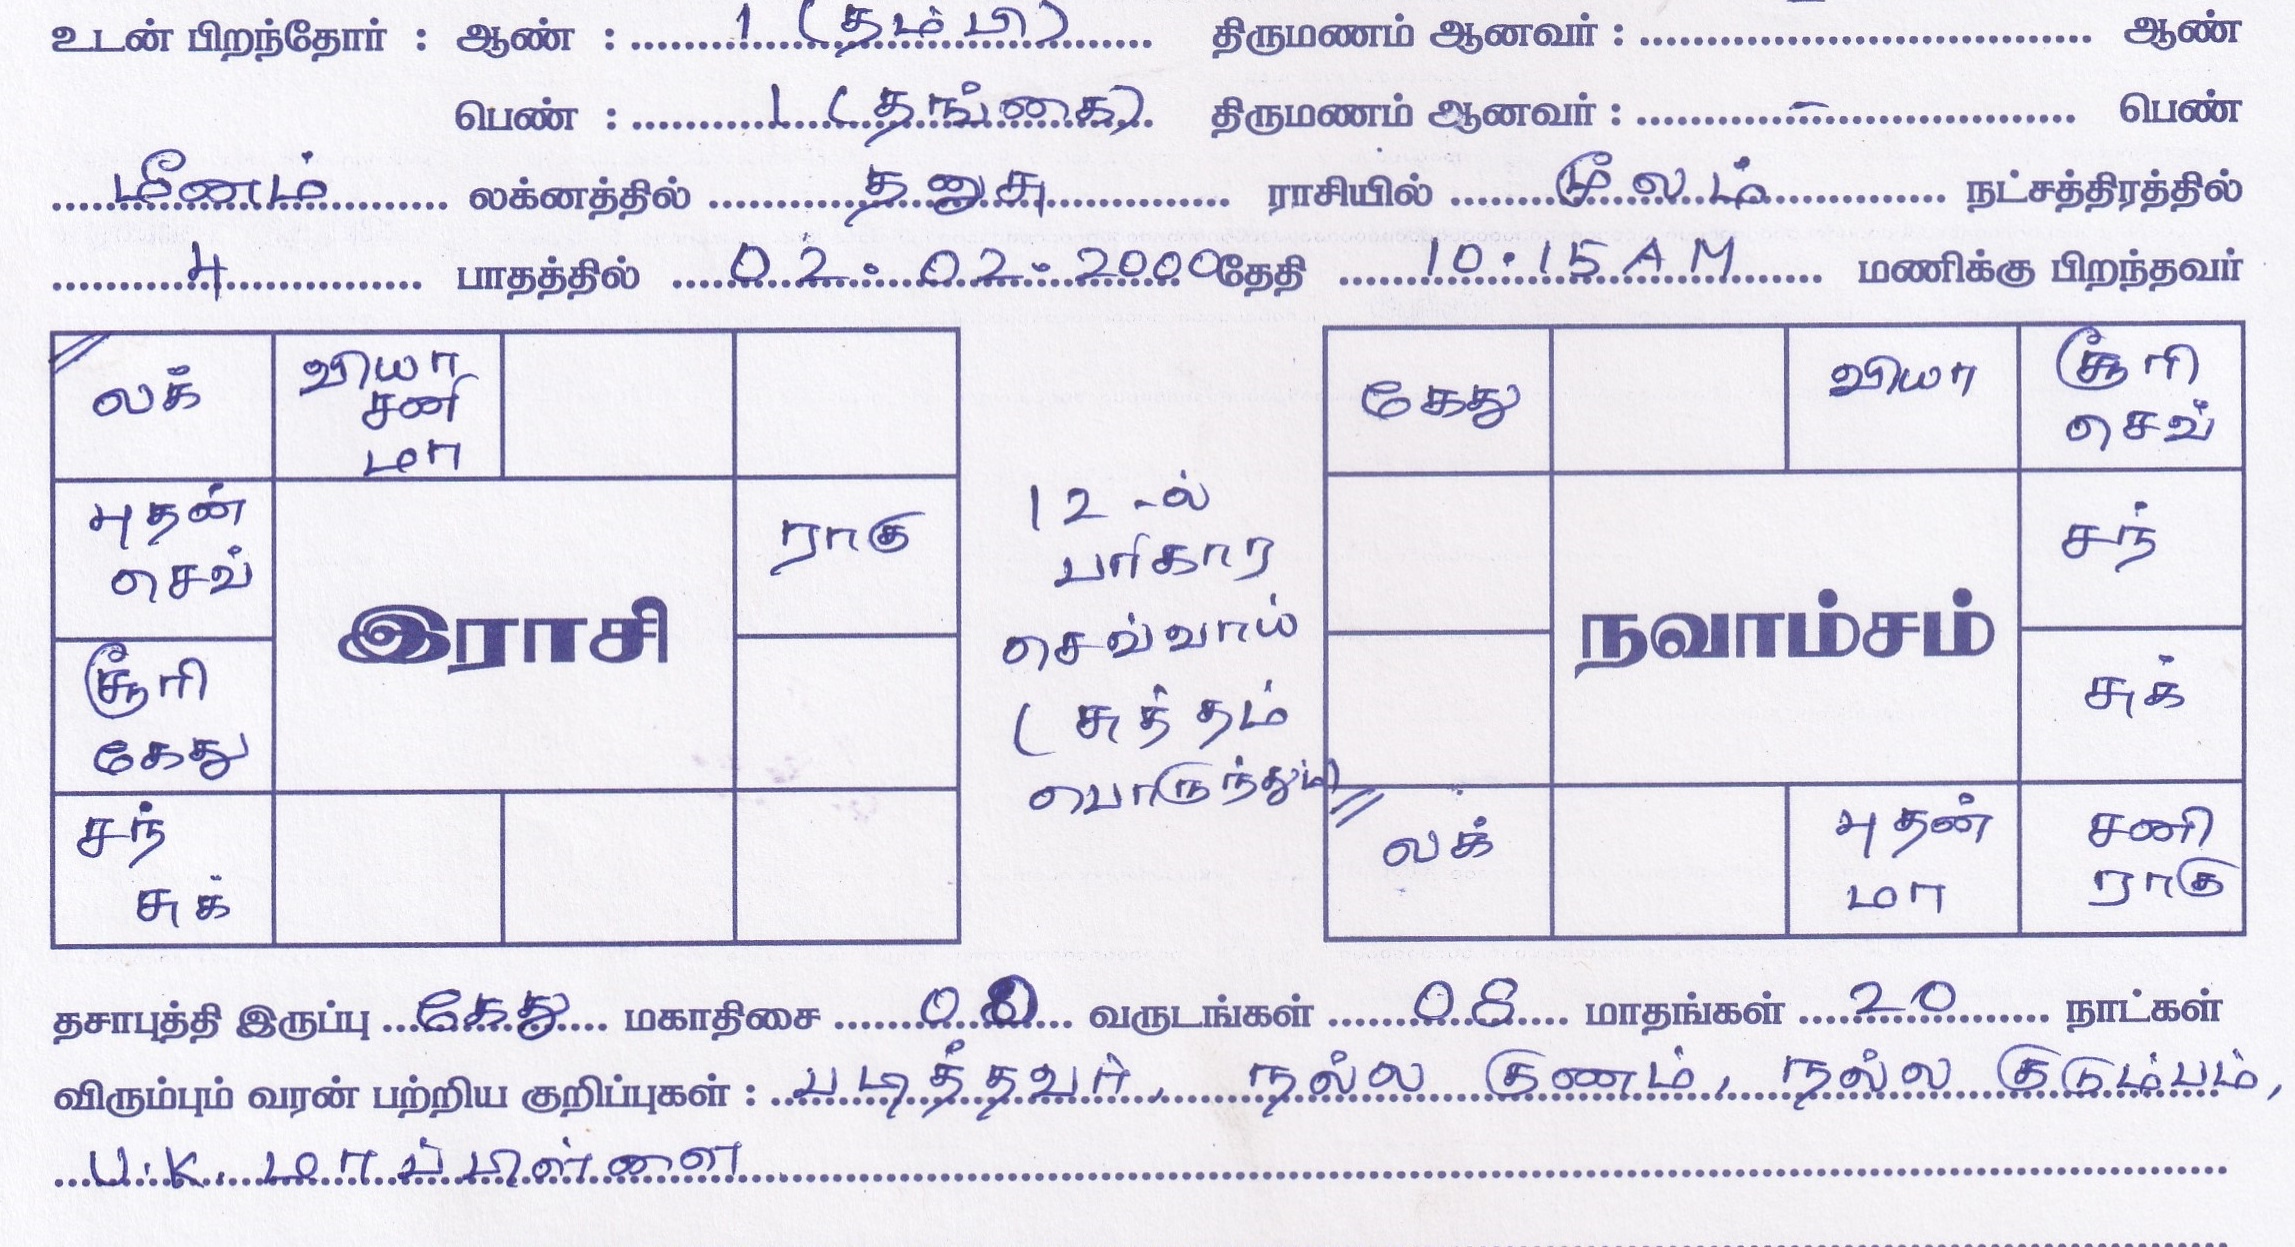 உடன் பிறந்தோர் : ஆண் : 1 (தம்பி) திருமணம் ஆனவர் : ஆண்
பெண் : 1 (தங்கை) திருமணம் ஆனவர் : – பெண்
மீனம் லக்னத்தில் தனுசு ராசியில் மூலம் நட்சத்திரத்தில்
4 பாதத்தில் 02.02.2000 தேதி 10.15 AM மணிக்கு பிறந்தவர்
லக்
வியா
சனி
மா
புதன்
செவ்
ராகு
இராசி
சூரி
கேது
சந்
சுக்
12-ல்
பரிகார
செவ்வாய்
(சுத்தம்
பொருந்தும்)
கேது
வியா
சூரி
செவ்
சந்
நவாம்சம்
சுக்
லக்
புதன்
மா
சனி
ராகு
தசாபுத்தி இருப்பு கேது மகாதிசை 00 வருடங்கள் 08 மாதங்கள் 20 நாட்கள்
விரும்பும் வரன் பற்றிய குறிப்புகள் : படித்தவர், நல்ல குணம், நல்ல குடும்பம்,
U.K. மாப்பிள்ளை